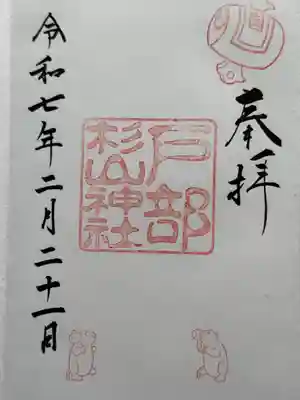 奉拝
戸部
杉山神社
令和七年二月二十一日